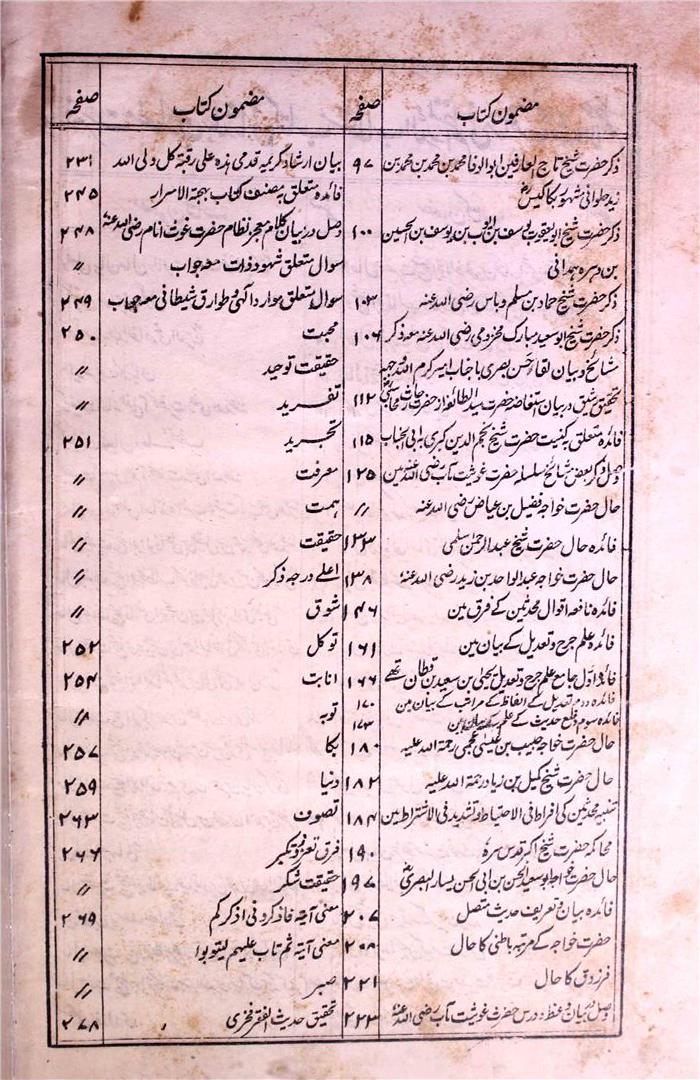 مضمون کتاب صفحہ
ذکر حضرت شیخ تاج العارفین ابو الوفا محمد بن محمد بن محمد بن ۹۷
زید حلوانی شہور بکاکیس
ذکر حضرت شیخ ابو یعقوب یوسف بن ایوب بن یوسف بن الحسین ۱۰۰
بن وہرہ ہمدانی
ذکر حضرت شیخ حماد بن مسلم دباس رضی اللہ عنہ ۱۰۳
ذکر حضرت شیخ ابو سعید مبارک مخزومی رضی اللہ عنہ معہ ذکر ۱۰۶
مشائخ و بیان لقاء حسن بصری با جناب امیر کرم اللہ وجہہ
تحقیق انیق در بیان استفاضہ حضرت سید الطائفہ از حضرت ۱۱۲
فائدہ متعلق بکیفیت حضرت شیخ نجم الدین کبری بابی الجناب ۱۱۵
وصل ذکر بعض مشائخ سلسلہ حضرت غوثیت مآب رضی اللہ عنہ مین ۱۲۵
حال حضرت خواجہ فضیل بن عیاض رضی اللہ عنہ //
فائدہ حال حضرت شیخ عبد الرحمٰن سلمی ۱۳۳
حال حضرت خواجہ عبد الواحد بن زید رضی اللہ عنہ ۱۳۸
فائدہ نافعہ اقوال محدثین کے فرق مین ۱۴۶
فائدہ علم جرح و تعدیل کے بیان مین ۱۶۱
فائدہ اول جامع علم جرح و تعدیل یحیی بن سعید بن قطان تھے ۱۶۶
فائدہ دوم تعدیل کے الفاظ کے مراتب کے بیان مین ۱۷۰
فائدہ سوم وضع حدیث کے علم کے بیان مین ۱۷۳
حال حضرت خواجہ حبیب بن عیسیٰ عجمی رحمۃ اللہ علیہ ۱۸۰
حال حضرت شیخ کمیل بن زیاد رحمۃ اللہ علیہ ۱۸۲
تنبیہ محدثین کی افراط فی الاحتیاط و تشدید فی الاشتراط مین ۱۸۴
محاکمہ حضرت شیخ اکبر قدس سرہ ۱۹۰
حال حضرت خواجہ ابو سعید الحسن بن ابی الحسن یسار البصری ۱۹۷
فائدہ بیان و تعریف حدیث متصل ۲۰۷
حضرت خواجہ کے مرتبہ باطنی کا حال ۲۰۸
فرزدق کا حال ۲۲۱
وصل در بیان وعظ و درس حضرت غوثیت مآب رضی اللہ عنہ ۲۲۳
مضمون کتاب صفحہ
بیان ارشاد کریمہ قدمی ہذہ علی رقبۃ کل ولی اللہ ۲۳۱
فائدہ متعلق بہ مصنف کتاب بہجۃ الاسرار ۲۴۵
وصل در بیان کلام معجز نظام حضرت غوث انام رضی اللہ عنہ ۲۴۸
سوال متعلق شہود ذات معہ جواب //
سوال متعلق موارد الٰہی و طوارق شیطانی معہ جواب ۲۴۹
محبت ۲۵۰
حقیقت توحید //
تفرید //
تجرید ۲۵۱
معرفت //
ہمت //
حقیقت //
اعلے درجہ ذکر //
شوق //
توکل ۲۵۲
انابت ۲۵۴
توبہ //
بکا ۲۵۷
دنیا ۲۵۹
تصوف ۲۶۳
فرق تعزز و تکبر ۲۶۶
حقیقت شکر //
معنی آیۃ فاذکرونی اذکرکم ۲۶۹
معنی آیۃ ثم تاب علیہم لیتوبوا //
صبر //
تحقیق حدیث الفقر فخری ۲۷۸